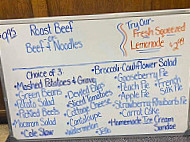 Roast Beef
-or-
Beef & Noodles
Try Our-
Fresh Squeezed
Lemonade
Choice of 3
- Mashed Potatoes & Gravy
- Green Beans
- Potato Salad
- Macaroni Salad
- Cole Slaw
- Deviled Eggs
- Sliced Tomatoes
- Cottage Cheese
- Cantaloupe
- Watermelon
- Jello
- Broccoli-Cauliflower Salad
- Gooseberry Pie
- Peach Pie
- Apple Pie
- Strawberry Rhubarb Pie
- Carrot Cake
- Homemade Ice Cream
Sundae